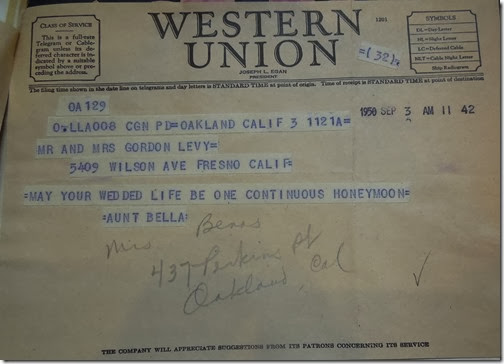 CLASS OF SERVICE
This is a full-rate
Telegram or Cable-
gram unless its de-
ferred character is in-
dicated by a suitable
symbol above or pre-
ceding the address.
WESTERN
UNION
1201
JOSEPH L. EGAN
PRESIDENT
=(32).
SYMBOLS
DL=Day Letter
NL=Night Letter
LC=Deferred Cable
NLT=Cable Night Letter
Ship Radiogram
The filing time shown in the date line on telegrams and day letters is STANDARD TIME at point of origin. Time of receipt is STANDARD TIME at point of destination
OA129
O.LLA008 CGN PD=OAKLAND CALIF 3 1121A=
1950 SEP 3 AM 11 42
MR AND MRS GORDON LEVY=
5409 WILSON AVE FRESNO CALIF=
=MAY YOUR WEDDED LIFE BE ONE CONTINUOUS HONEYMOON=
=AUNT BELLA=
Mrs
437 Perkins
Oakland, Cal
THE COMPANY WILL APPRECIATE SUGGESTIONS FROM ITS PATRONS CONCERNING ITS SERVICE